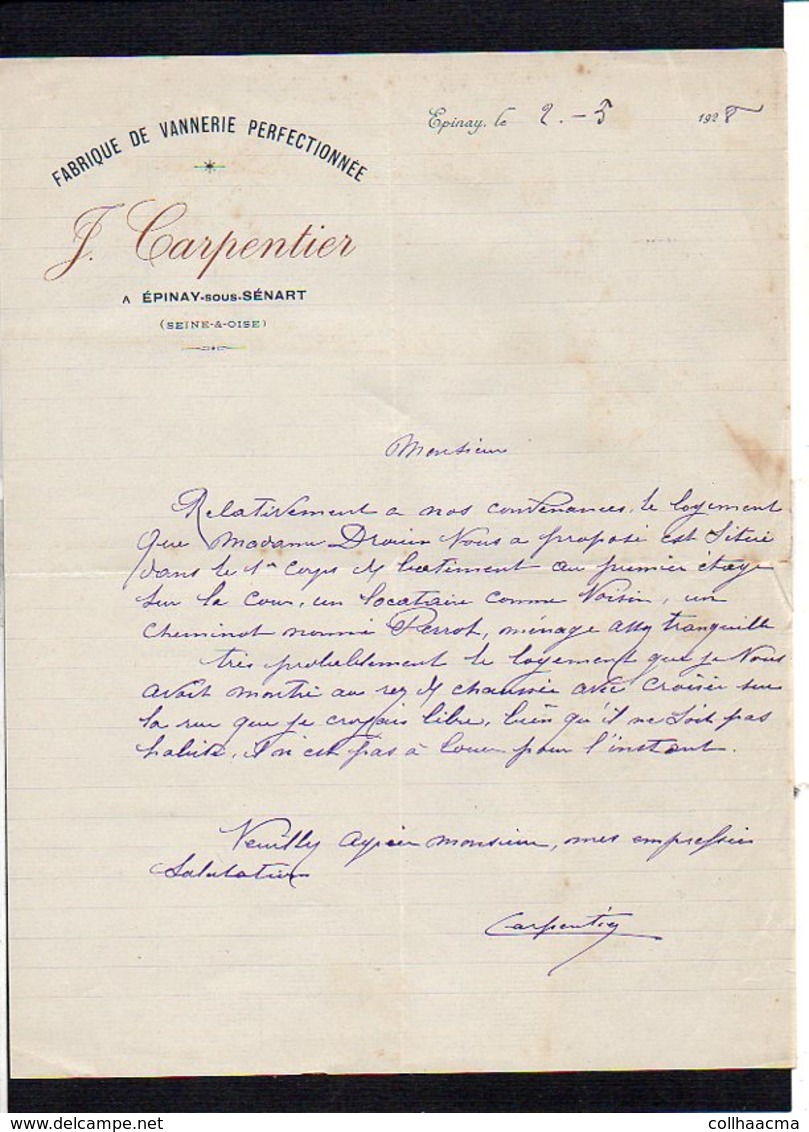 FABRIQUE DE VANNERIE PERFECTIONNÉE
J. Carpentier
A ÉPINAY-SOUS-SÉNART
(SEINE-&-OISE)
Epinay, le 2.-5 1928
Monsieur
Relativement a nos convenances, le logement
que Madame Drouin Nous a proposé est Situé
dans le 1er Corps de batiment au premier étage
Sur la Cour, un locataire comme Voisin, un
Cheminot nommé Perrot, ménage assez tranquille
très probablement le logement que je Vous
avait montré au rez de chaussée avec Croisée sur
la rue que je croyais libre, bien qu'il ne Soit pas
habité, il n'est pas à louer pour l'instant.
Veuilly agréer monsieur, mes empressées
Salutations
Carpentier
collhaacma